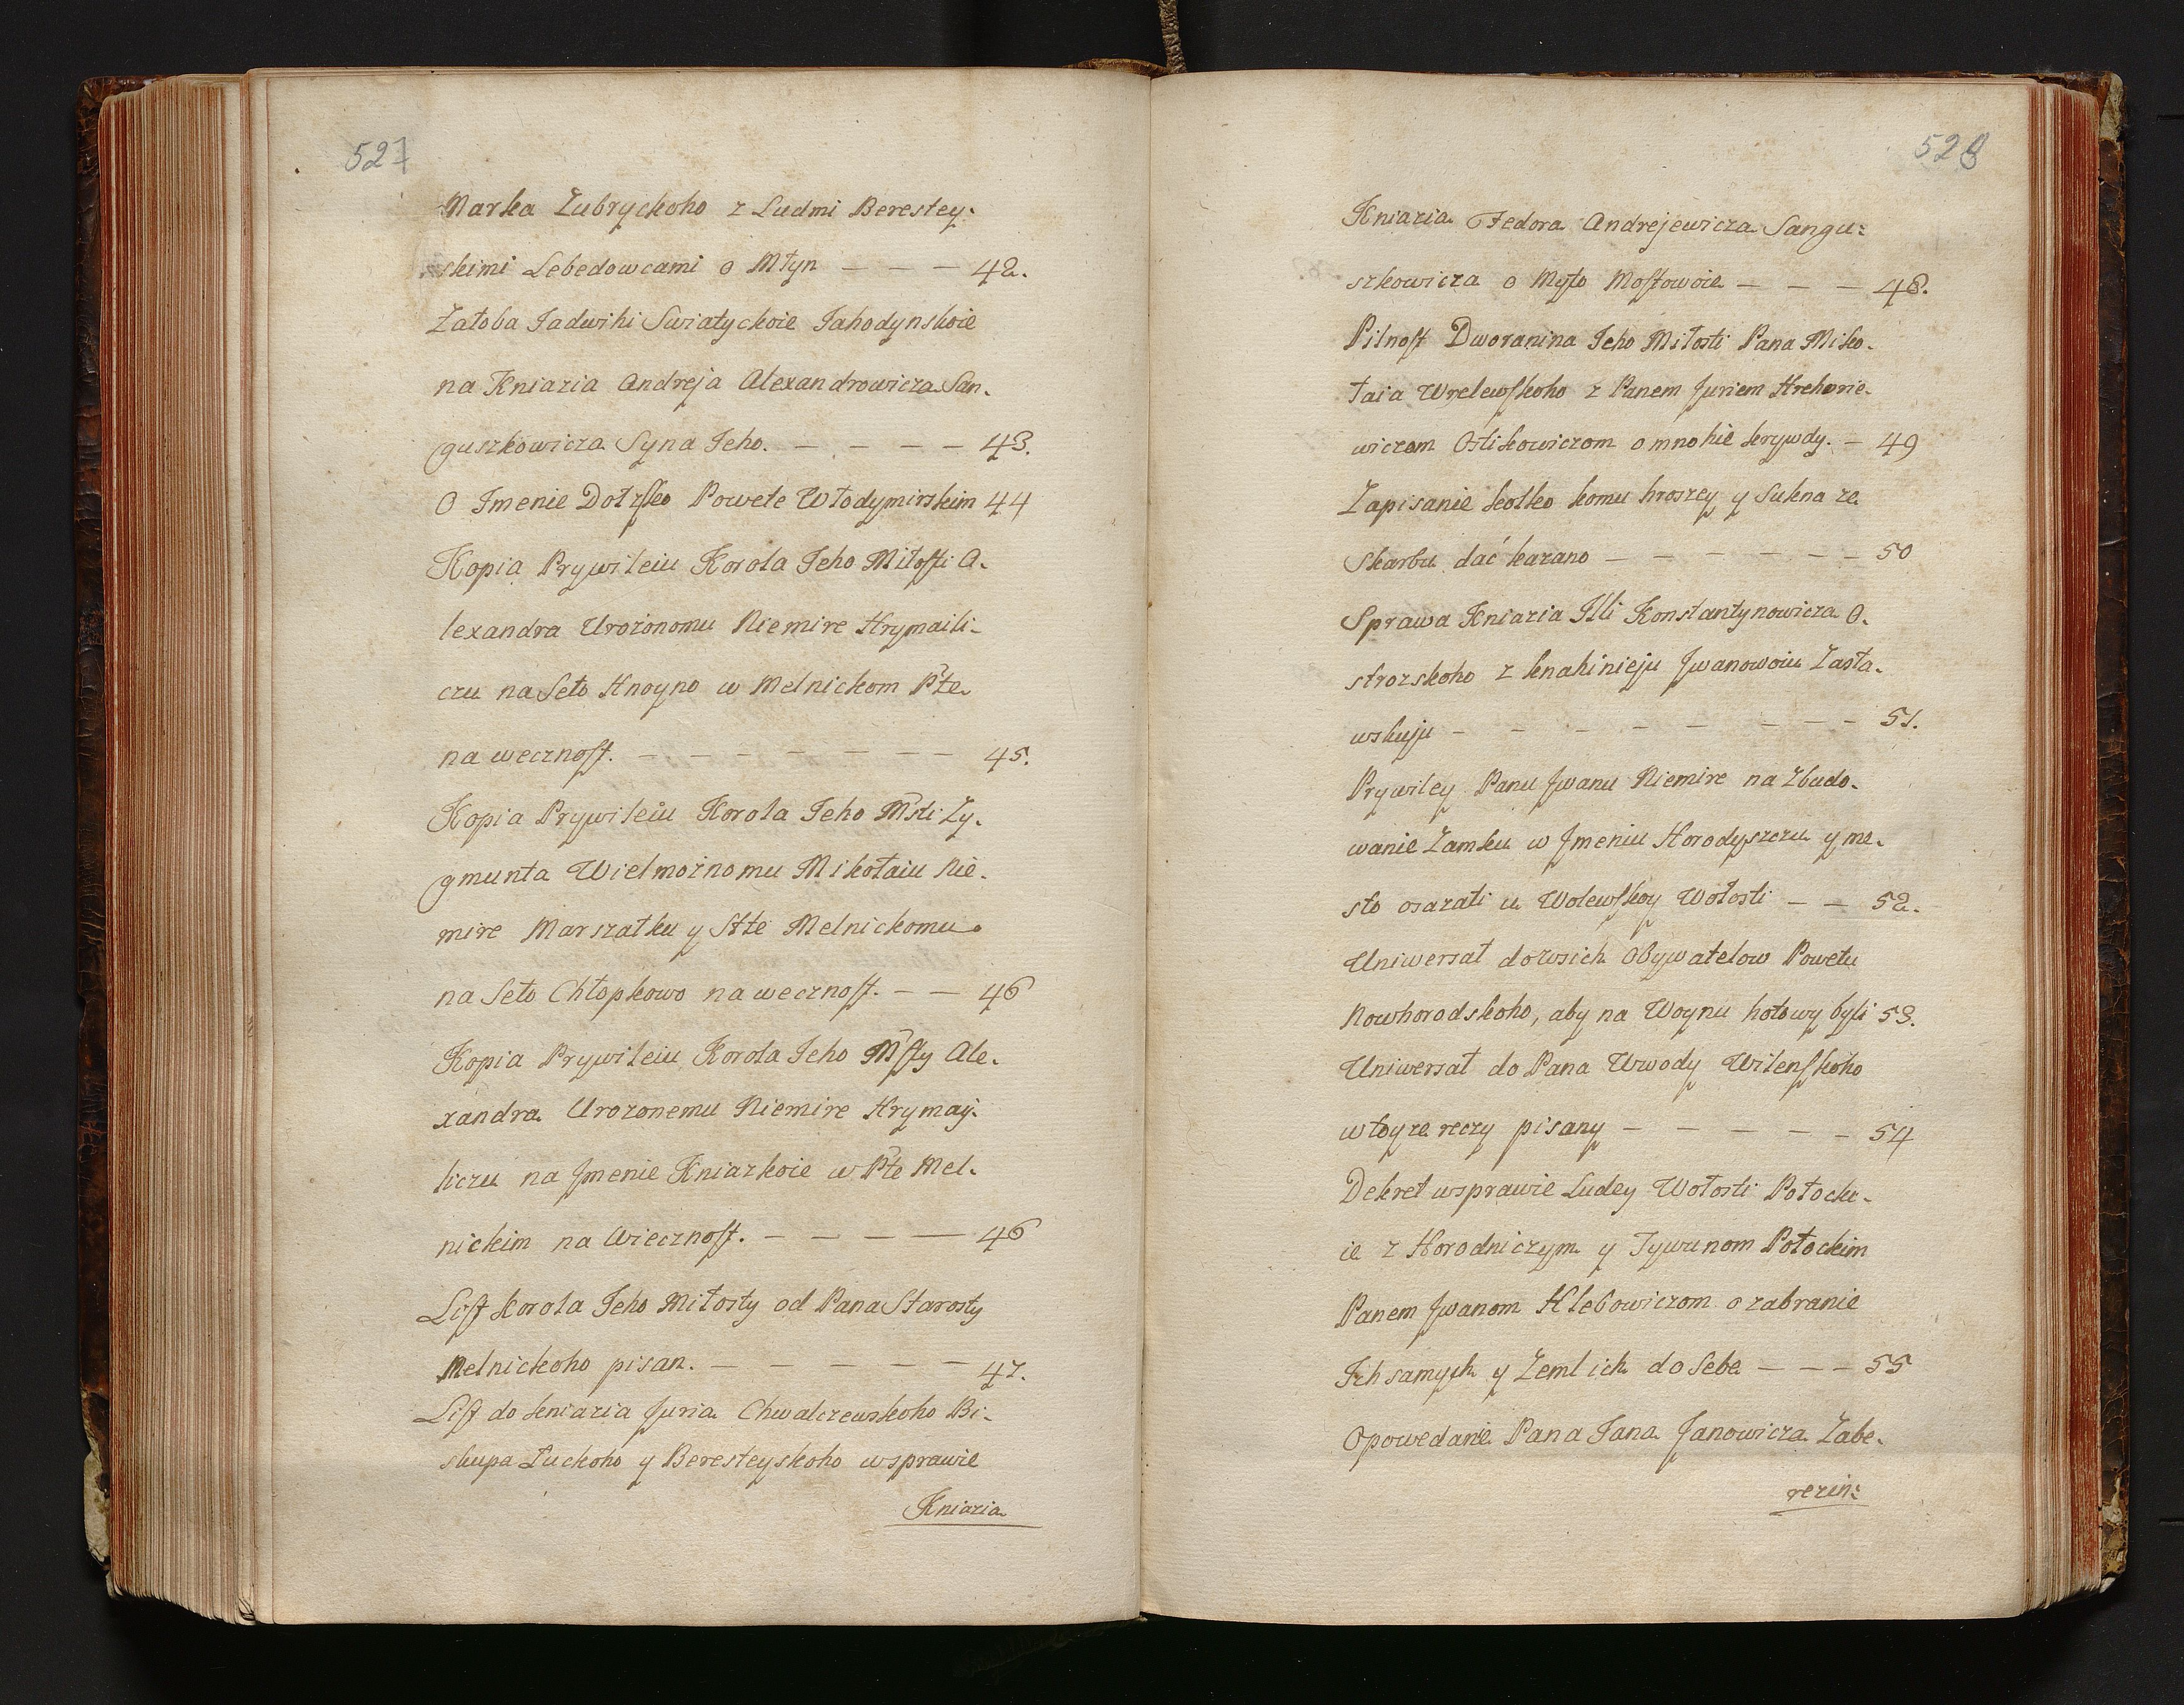 527
Marka Zubryckoho z Ludmi Berestey-
skimi Lebedowcami o Młyn — — — 42.
Załoba Jadwihi Swiatyckoie Jahodynskoie
na Kniazia Andreja Alexandrowicza San-
guszkowicza Syna Jeho. — — — — 43.
O Imenie Dołzsko Powete Włodymirskim 44
Kopia Prywileiu Korola Jeho Miłosti A-
lexandra Urozonomu Niemire Hrymaili-
czu na Seło Hnoyno w Melnickom Pte
na wecznost. — — — — — — — 45.
Kopia Prywileiu Korola Jeho Msti Zy-
gmunta Wielmożnomu Mikołaiu Nie-
mire Marszałku y Stte Melnickomu
na Seło Chłopkowo na wecznost. — — 46
Kopia Prywileiu Korola Jeho Msty Ale-
xandra Urozonemu Niemire Hrymay-
liczu na Jmenie Kniazkoie w Pte Mel-
nickim na Wiecznost. — — — — 46
List korola Jeho Miłosty od Pana Starosty
Melnickoho pisan. — — — — — 47.
List do kniazia Juria Chwalczewskoho Bi-
skupa Łuckoho y Beresteyskoho wsprawie
Kniazia
528
Kniazia Fedora Andrejewicza Sangu-
szkowicza o Myto Mostowoie — — — 48.
Pilnost Dworanina Jeho Miłosti Pana Miko-
łaia Wrelewskoho z Panem Juriem Hrehorie-
wiczom Ostikowiczom o mnohie krywdy. — 49
Zapisanie kolko komu hroszey y Sukna ze
Skarbu dać kazano — — — — — — 50
Sprawa Kniazia Ilii Konstantynowicza O-
strozskoho z knahinieju Jwanowoiu Zasła-
wskuju — — — — — — — — 51.
Prywiley Panu Jwanu Niemire na Zbudo-
wanie Zamku w Jmeniu Horodyszczu y me-
sto osazati u Wolewskoy Wołosti — — 52.
Uniwersał dowsich Obywatelow Powetu
Nowhorodskoho, aby na Woynu hotowy byli 53.
Uniwersał do Pana Wwody Wilenskoho
wtoyze reczy pisany — — — — — 54
Dekret wsprawie Ludey Wołosti Połocko-
ie z Horodniczym y Tywunom Połockim
Panem Jwanom Hlebowiczom o zabranie
Ich samych y Zeml ich do Sebe — — — 55
Opowedanie Pana Jana Janowicza Zabe-
rezin-